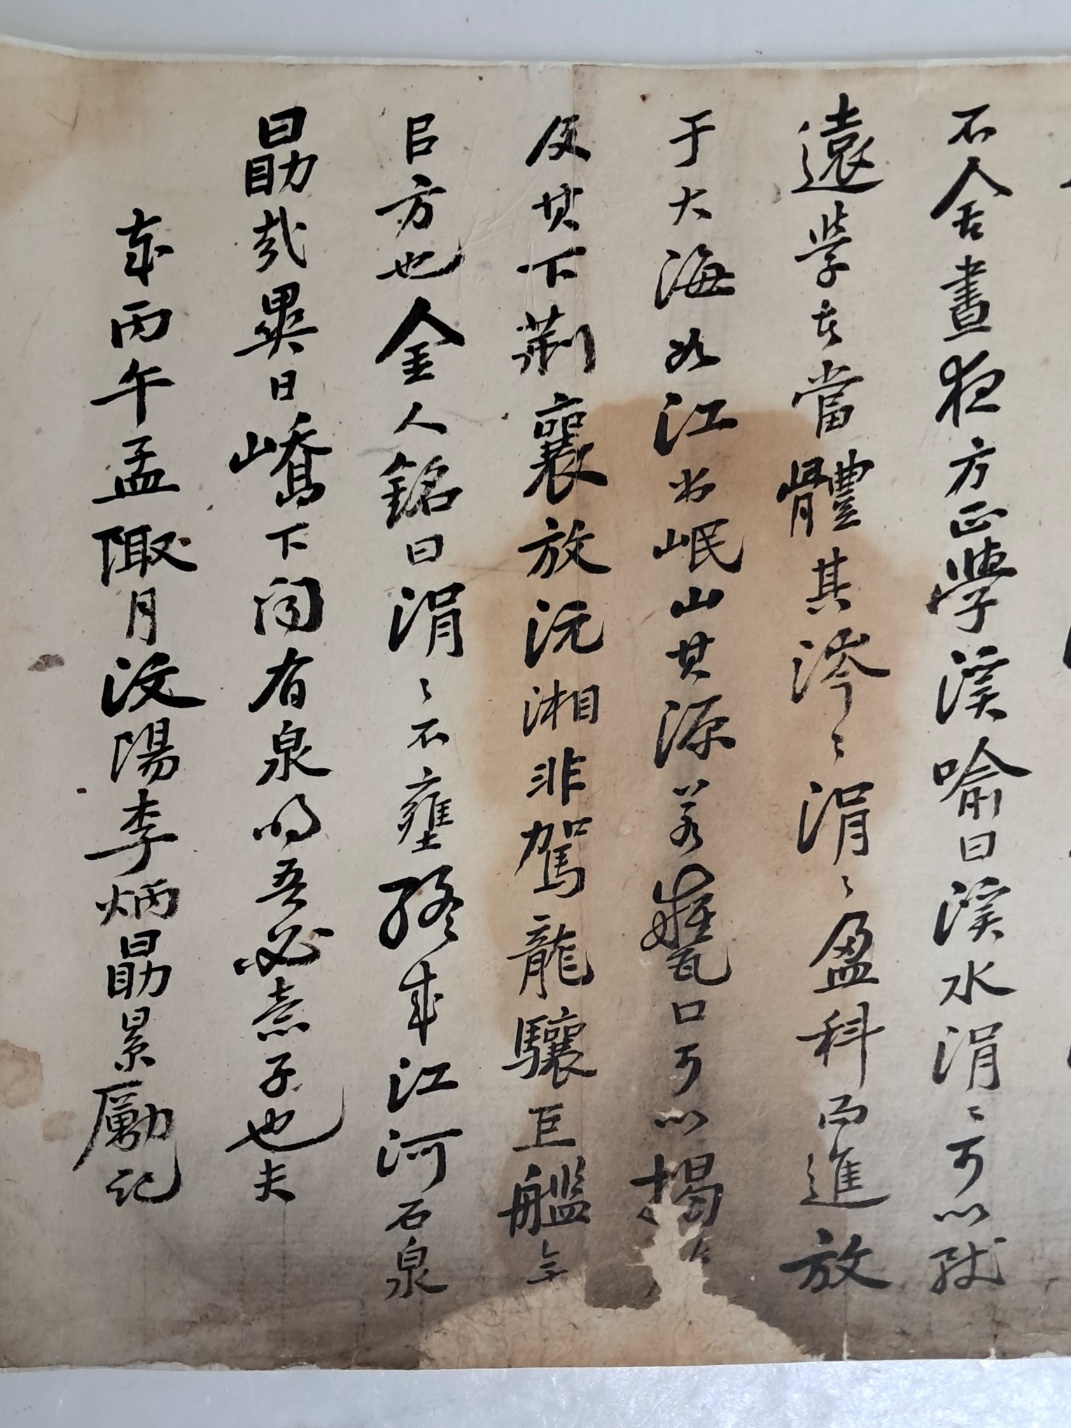 不舍晝夜方正學溪喻曰溪水涓〻可以
遠學者當體其涔〻涓〻盈科而進放
于大海如江出岷山其源若甕口可以揭
及其下荊襄放沅湘非駕龍驤巨艦
方也金人銘曰涓〻不壅終成江河石泉
勗哉異日嶠下聞有泉鳴吾必意子也夫
歲丙午孟陬月汶陽李炳勗景勵記